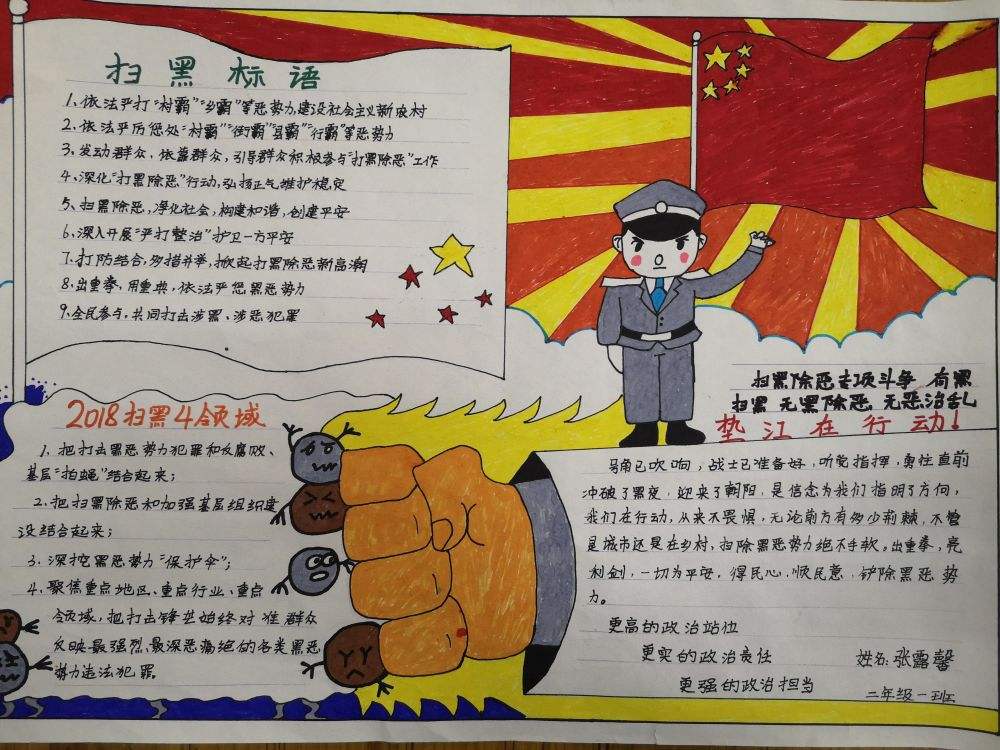 扫黑标语
1、依法严打"村霸""乡霸"等恶势力,建设社会主义新农村
2、依法严厉惩处"村霸""街霸""县霸""行霸"等恶势力
3、发动群众、依靠群众,引导群众积极参与"打黑除恶"工作
4、深化"打黑除恶"行动,弘扬正气维护稳定
5、扫黑除恶,净化社会,构建和谐,创建平安
6、深入开展"严打整治"护卫一方平安
7、打防结合,多措并举,掀起打黑除恶新高潮
8、出重拳,用重典,依法严惩黑恶势力
9、全民参与,共同打击涉黑、涉恶犯罪
2018扫黑4领域
1、把打击黑恶势力犯罪和反腐败、
基层"拍蝇"结合起来;
2、把扫黑除恶和加强基层组织建
设结合起来;
3、深挖黑恶势力"保护伞";
4、聚焦重点地区、重点行业、重点
领域,把打击锋芒始终对准群众
反映最强烈、最深恶痛绝的各类黑恶
势力违法犯罪。
扫黑除恶专项斗争 有黑
扫黑 无黑除恶 无恶治乱
垫江在行动!
号角已吹响,战士已准备好,听党指挥,勇往直前
冲破了黑夜,迎来了朝阳,是信念为我们指明了方向,
我们在行动,从来不畏惧,无论前方有多少荆棘,不管
是城市还是在乡村,扫除黑恶势力绝不手软。出重拳,亮
利剑,一切为平安,得民心,顺民意,铲除黑恶势
力。
更高的政治站位
更实的政治责任
更强的政治担当
姓名:张露馨
二年级一班